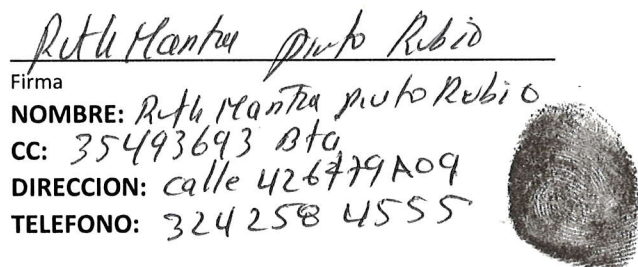 Ruth Mantha Pinto Rubio
Firma
NOMBRE: Ruth Mantha Pinto Rubio
CC: 35493693 Bta
DIRECCION: calle 42
TELEFONO: 324 258 4555